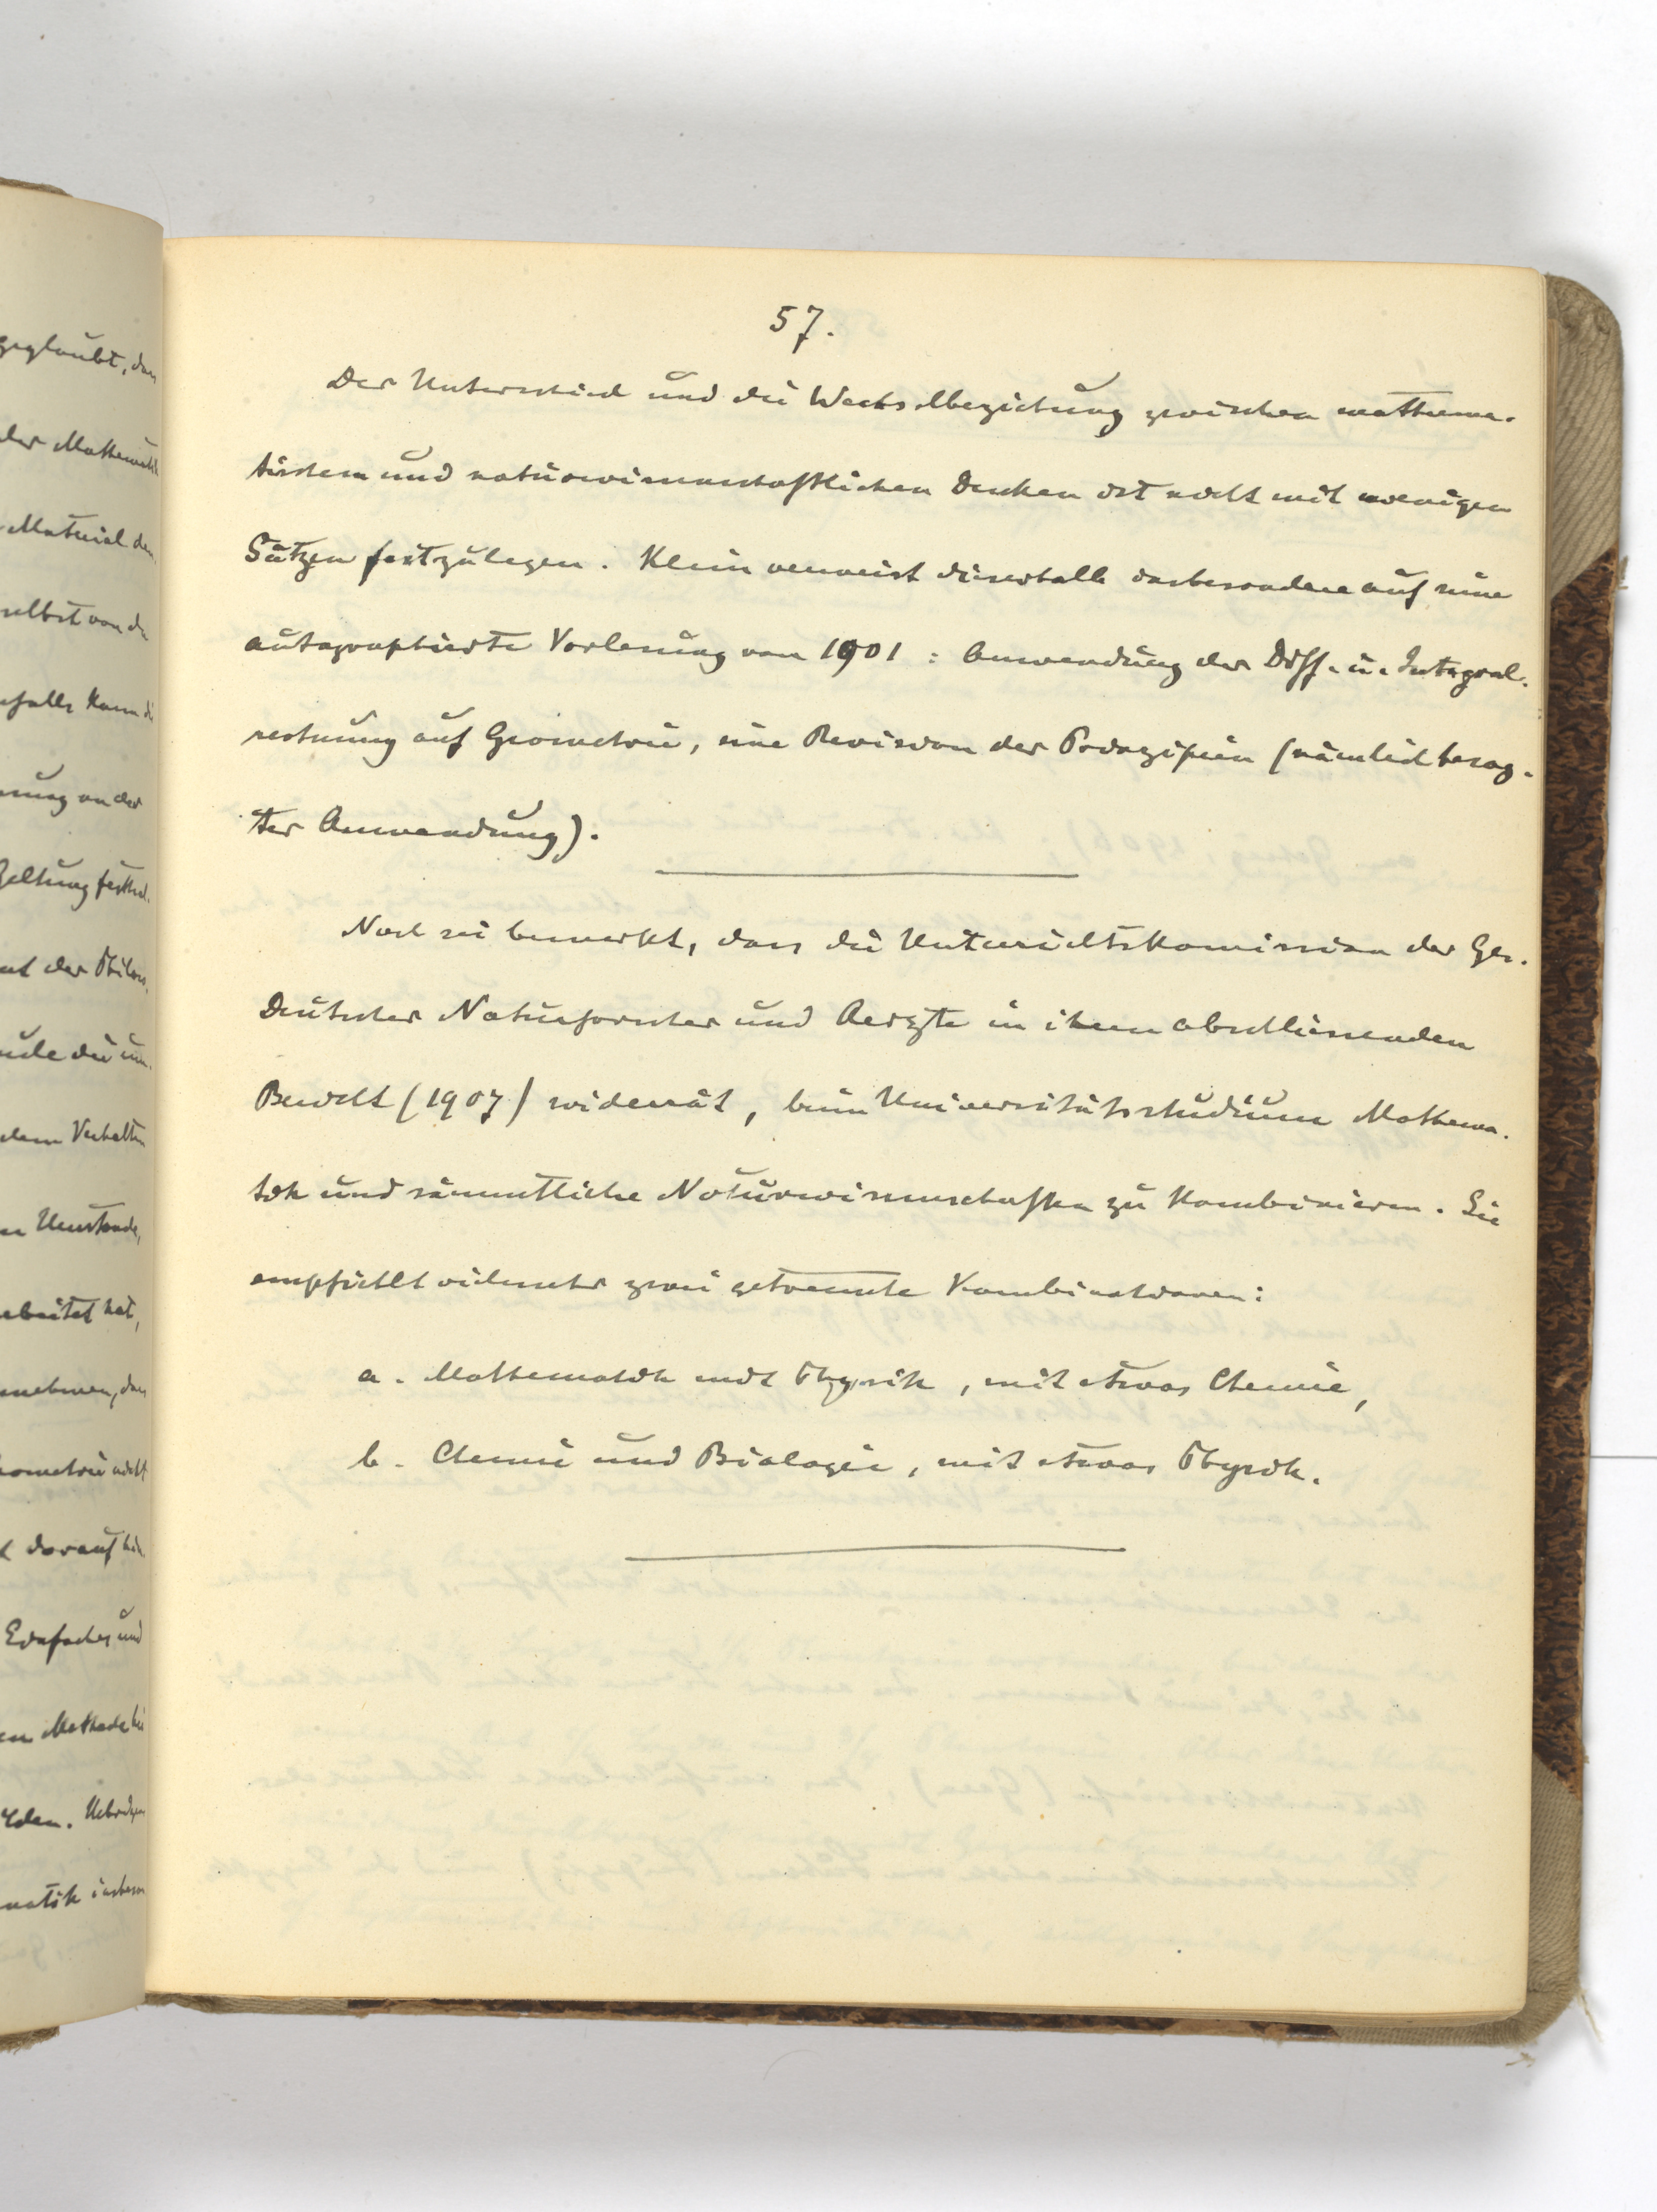 geglaubt, dass
der Mathematik
Material den
selbst von der
nfalls kann die
nung an der
Geltung festhal-
ut der Philos.
ule die
dem Verhalten
n Umstande,
rbeitet hat,
nehmen, dass
ometrie nicht
t darauf hin
Einfaches und
en Methode bei
rden. Uebrigens
matik insbeson
57.
Der Unterschied und die Wechselbeziehung zwischen mathema-
tischem und naturwissenschaftlichen Denken ist nicht mit wenigen
Sätzen festzulegen. Klein verweist dieserhalb insbesondere auf seine
autographierte Vorlesung von 1901: Anwendung der Diff.- u. Integral-
rechnung auf Geometrie, eine Revision der Prinzipien (nämlich besag-
ter Anwendung).
Noch sei bemerkt, dass die Unterrichtskomission der Ges.
Deutscher Naturforscher und Aerzte in ihrem abschliessenden
Bericht (1907) widerrät, beim Universitätsstudium Mathema-
tik und sämmtliche Naturwissenschaften zu kombinieren. Sie
empfiehlt vielmehr zwei getrennte Kombinationen:
a. Mathematik und Physik, mit etwas Chemie,
b. Chemie und Biologie, mit etwas Physik.